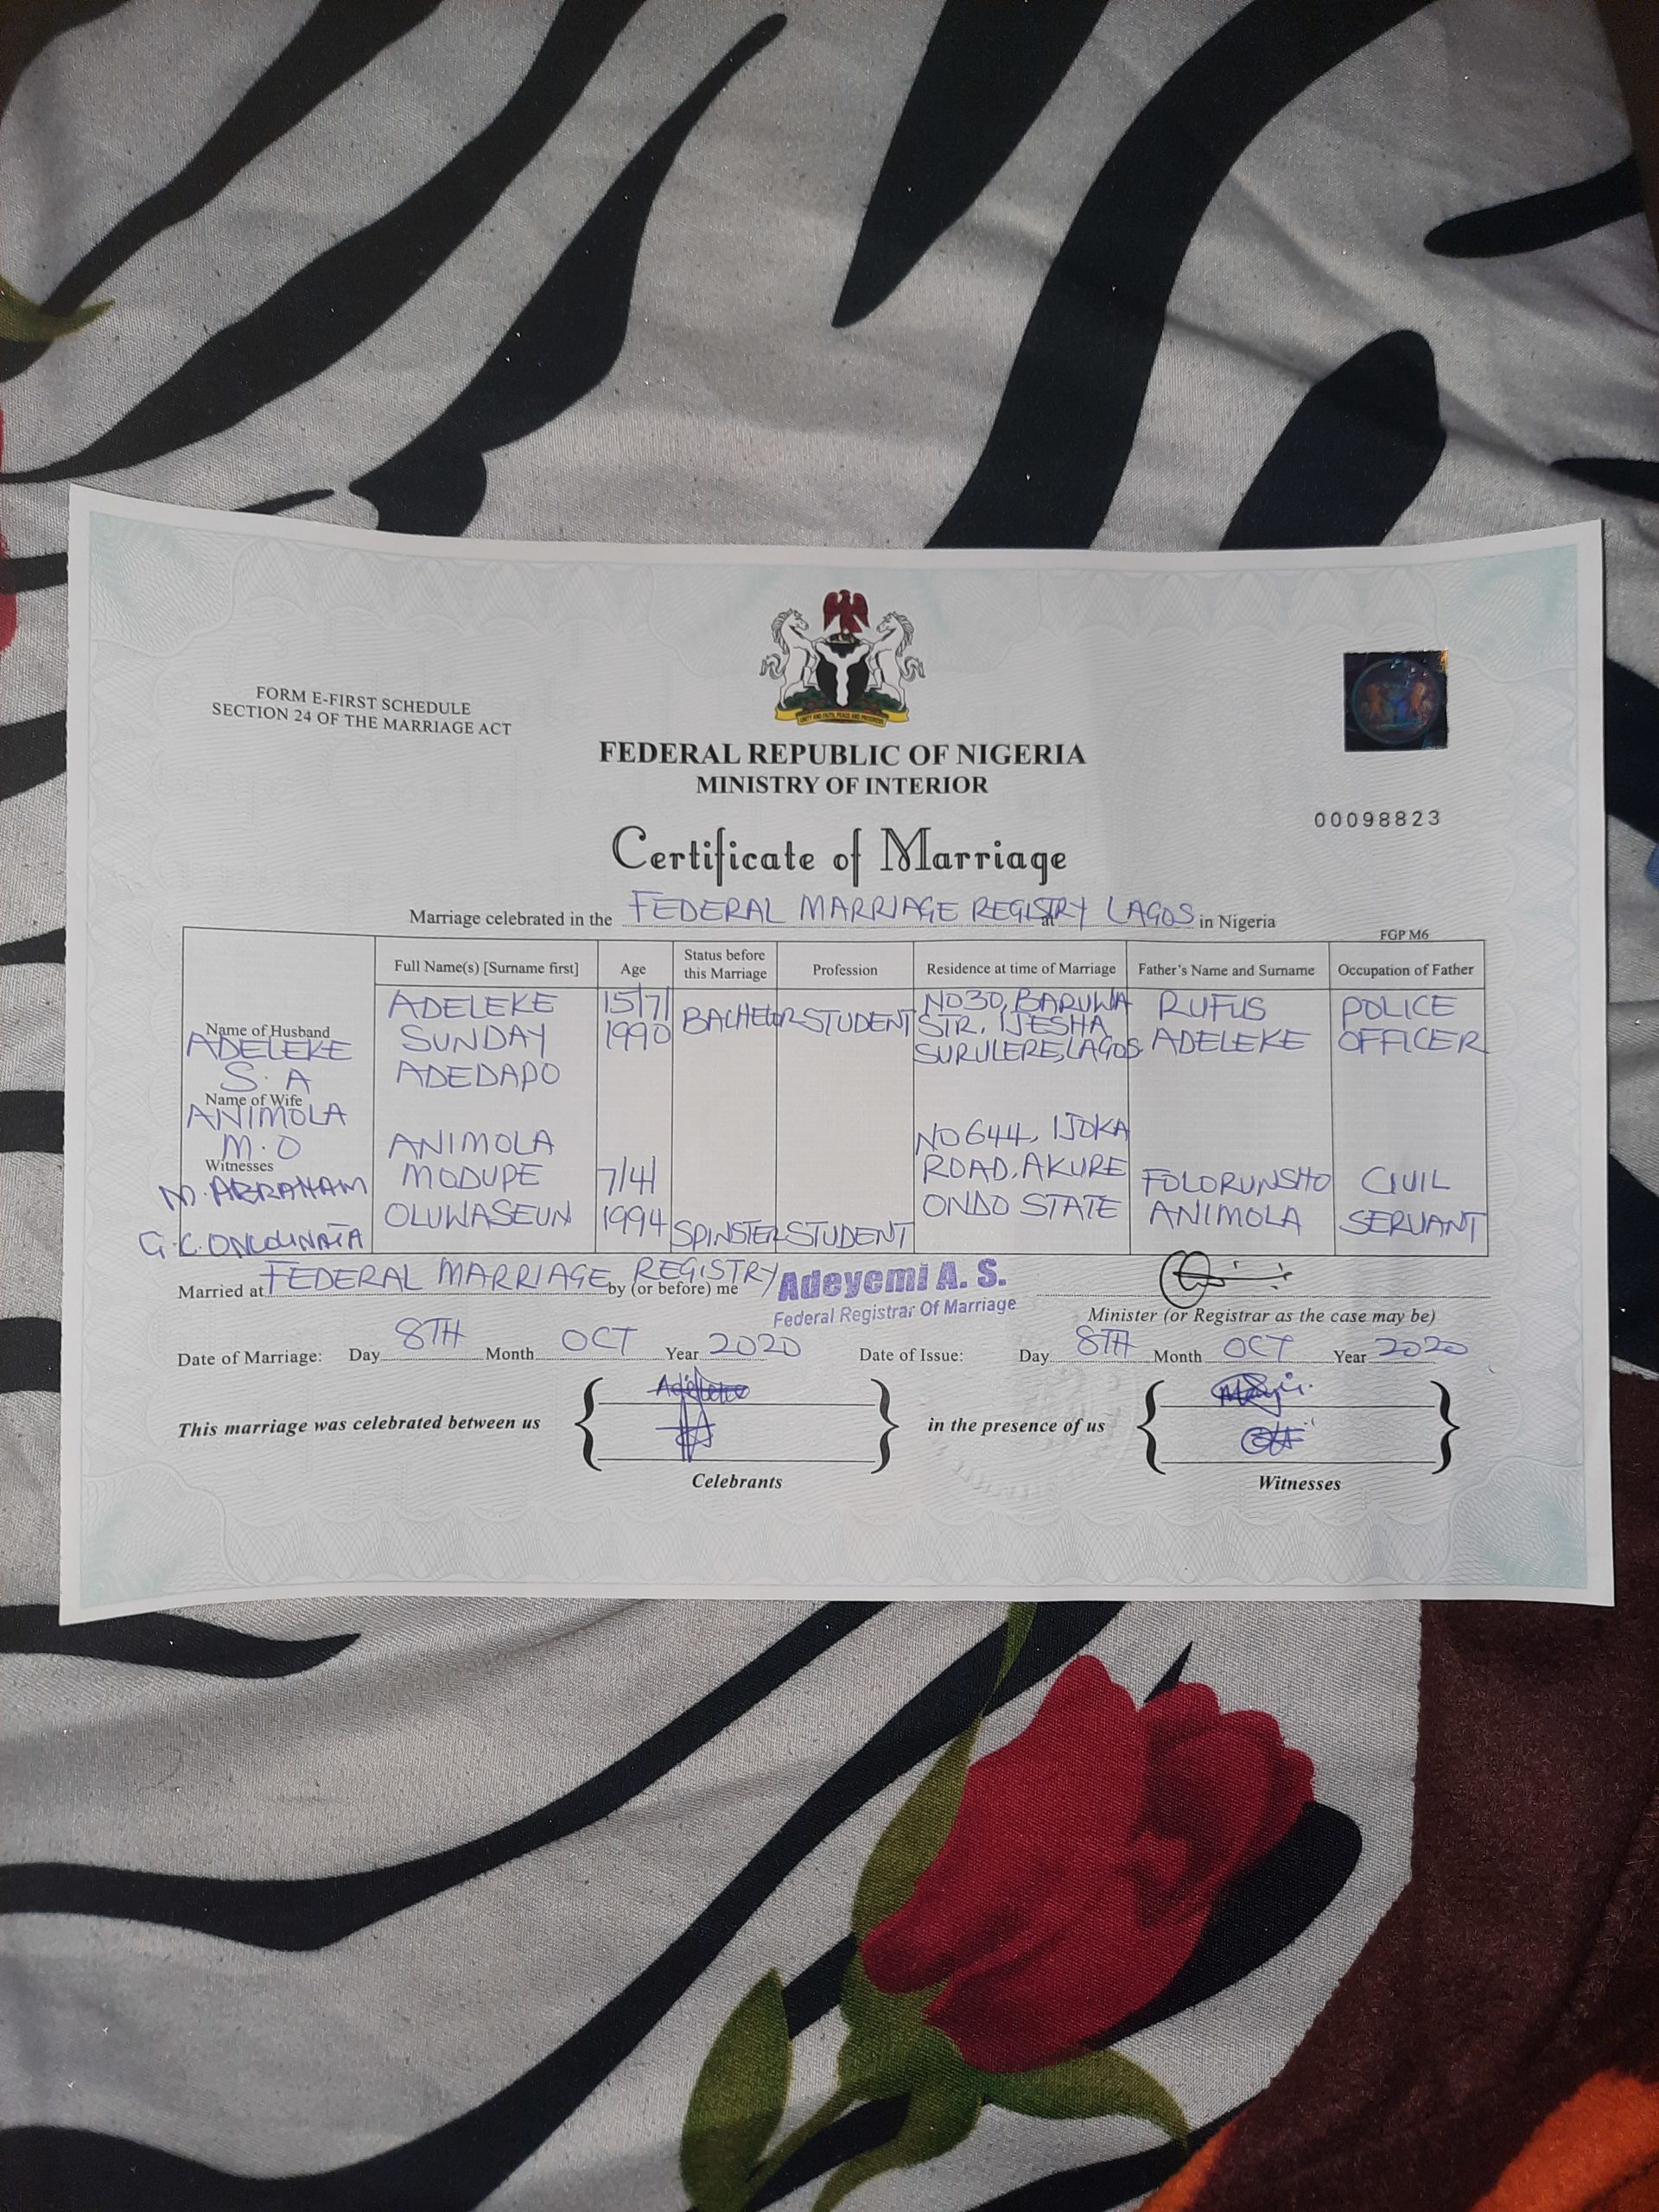 UNITY AND FAITH, PEACE AND PROGRESS
FORM E-FIRST SCHEDULE
SECTION 24 OF THE MARRIAGE ACT
FEDERAL REPUBLIC OF NIGERIA
MINISTRY OF INTERIOR
00098823
Certificate of Marriage
Marriage celebrated in the FEDERAL MARRIAGE REGISTRY LAGOS at in Nigeria
FGP M6
Full Name(s) [Surname first] Age Status before this Marriage Profession Residence at time of Marriage Father's Name and Surname Occupation of Father
Name of Husband
ADELEKE
S. A
ADELEKE
SUNDAY
ADEDAPO
15/7/
1990
BACHELOR
STUDENT
NO30, BARUWA
STR, IJESHA
SURULERE, LAGOS.
RUFUS
ADELEKE
POLICE
OFFICER
Name of Wife
ANIMOLA
M. O
ANIMOLA
MODUPE
OLUWASEUN
7/4/
1994
SPINSTER
STUDENT
NO644, IJOKA
ROAD, AKURE
ONDO STATE
FOLORUNSHO
ANIMOLA
CIVIL
SERVANT
Witnesses
M. ABRAHAM
G. C.
Married at FEDERAL MARRIAGE REGISTRY by (or before) me Adeyemi A. S.
Federal Registrar Of Marriage
Minister (or Registrar as the case may be)
Date of Marriage: Day 8TH Month OCT Year 2020 Date of Issue: Day 8TH Month OCT Year 2020
This marriage was celebrated between us Adeleke in the presence of us
Celebrants Witnesses